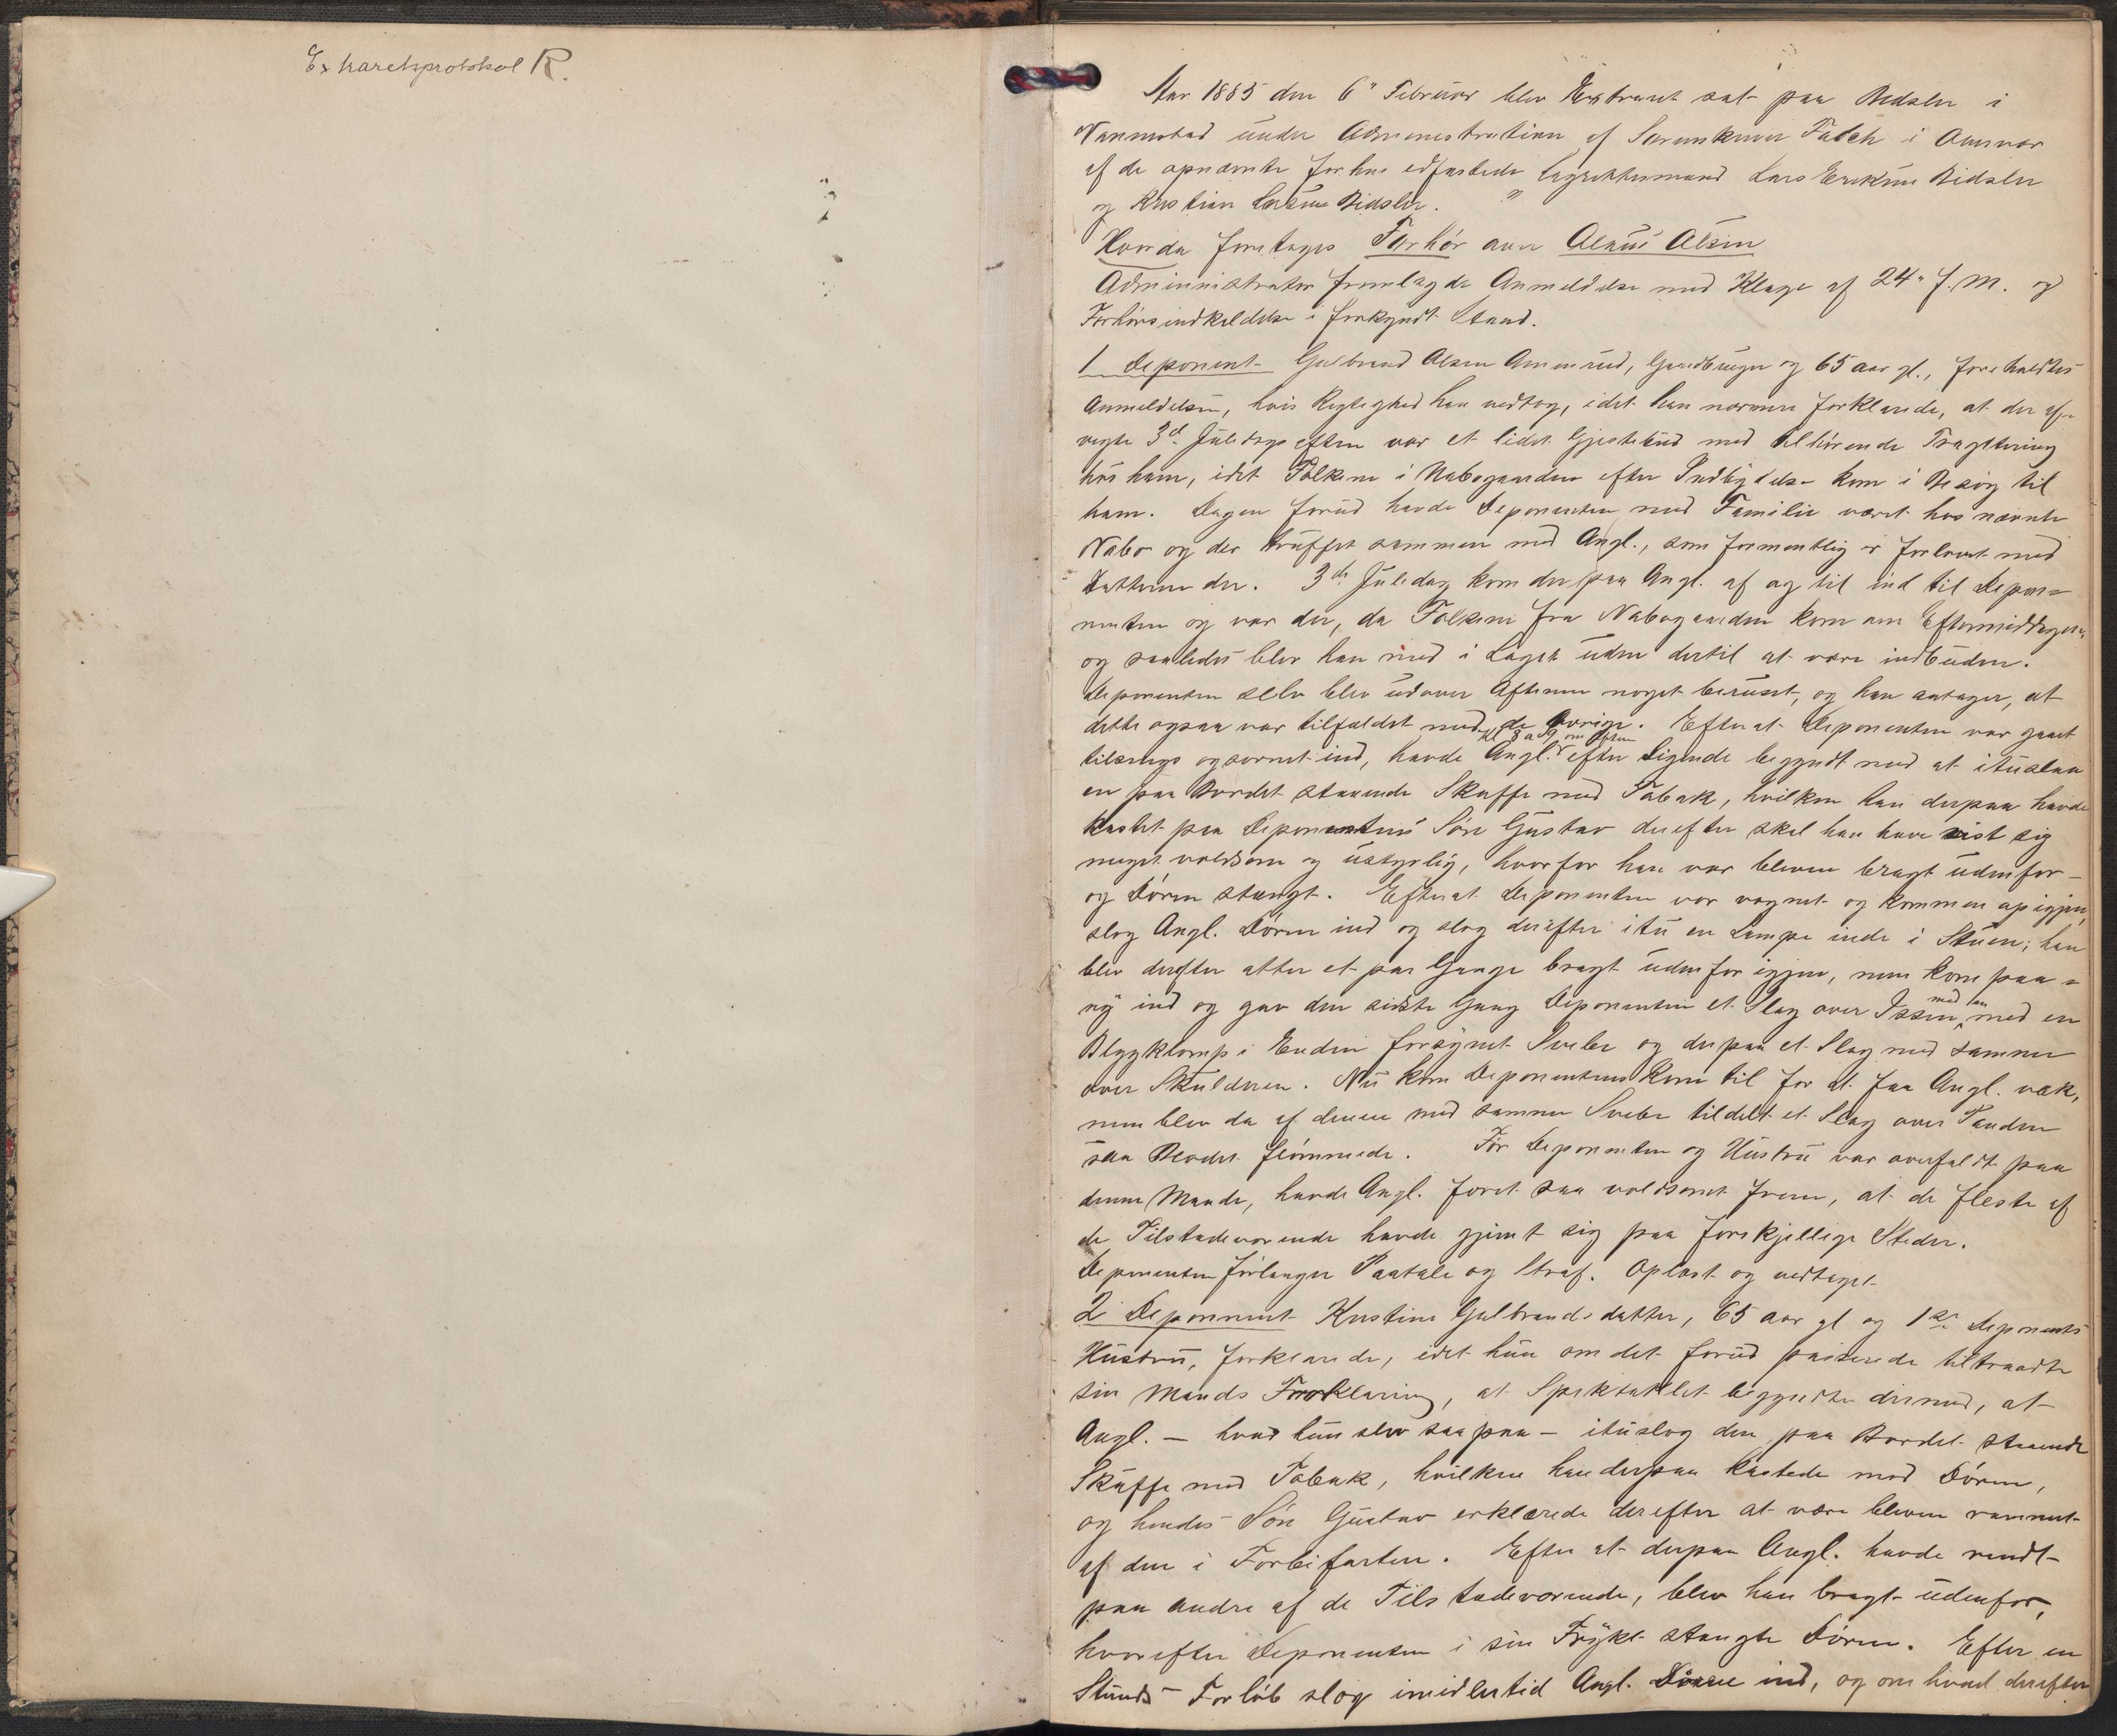 Extraretsprotokol R.
Aar 1885 den 6" Februar blev Extraret sat paa Bidsler i
Nannestad under Administration af Sorenskriver Falch i Overvær
af de opnævnte forhen edfæstede Lagrettesmænd Lars Eriksen Bidsler
og Kristian Larsen Bidsler. "
Hvorda foretoges Forhør over Olaus Olsen
Administrator fremlagde Anmeldelse med Klage af 24" f. M. og
Forhørsindkaldelse i forkyndt Stand.
1 Deponent Gulbrand Olsen Amunrud, Gaardbruger og 65 aar gl., foreholdtes
Anmeldelsen, hvis Rigtighed han vedtog, idet han nærmere forklarede, at der af-
vigte 3d. Juledags aften var et lidet Gjestebud med tilhørende Tragtering
hos ham, idet Folkene i Nabogaarden efter Indbydelse kom i Besøg til
ham. Dagen forud havde Deponenten med Familie været hos nævnte
Nabo og der truffet sammen med Angl., som formentlig er forlovet med
Datteren der. 3die Juledag kom derpaa Angl. af og til ind til Depon-
nenten og var der, da Folkene fra Nabogaarden kom om Eftermiddagen,
og saaledes blev han med i Laget uden dertil at være indbuden.
Deponenten selv blev udover Aftenen noget beruset, og han antager, at
dette ogsaa var tilfældet med de Øvrige. Efterat Deponenten var gaaet
kl 8 a 9 om Aften
tilsengs og sovnet ind, havde Angl. efter Sigende begyndt med at ituslaa
en paa Bordet staaende Skuffe med Tobak, hvilken han derpaa havde
kastet paa Deponentens Søn Gustav derefter skal han have vist sig
meget voldsom og ustyrlig, hvorfor han var bleven bragt udenfor
og Døren stængt. Efterat Deponenten var vognet og kommen op igjen,
slog Angl. Døren ind og slog derefter itu en Lampe inde i Stuen; han
blev derefter atter et par Gange bragt udenfor igjen, men kom paa
ny ind og gav den sidste Gang Deponenten et Slag over Issen med en med en
Blyklomp i Enden forsynet Svebe og derpaa et Slag med samme
over Skulderen. Nu kom Deponentens Kone til for at faa Angl. væk,
men blev da af denne med samme Svebe tildelt et Slag over Panden
saa Blodet flømmede. Før Deponenten og Hustru var overfaldt paa
denne Maade, havde Angl. faret saa voldsomt frem, at de fleste af
de Tilstedeværende havde gjemt sig paa forskjellige Steder.
Deponenten forlanger Paatale og Straf. Oplæst og vedtaget
2 Deponent Kristine Gulbrandsdatter, 65 aar gl og 1ste Deponents
Hustru, forklarede, idet hun om det forud passerede tiltraadte
sin Mands Forklaring, at Spektaklet begyndte dermed, at
Angl. – hvad hun selv saa paa – ituslog den paa Bordet staaende
Skuffe med Tobak, hvilken han derpaa kastede mod Døren,
og hendes Søn Gustav erklærede derefter at være bleven rammet
af den i Forbifarten. Efter at derpaa Angl. havde rendt
paa andre af de Tilstedeværende, blev han bragt udenfor,
hvorefter Deponenten i sin Frykt stængte Døren. Efter en
Stunds Forløb slog imidlertid Angl. Døren ind, og om hvad derefter